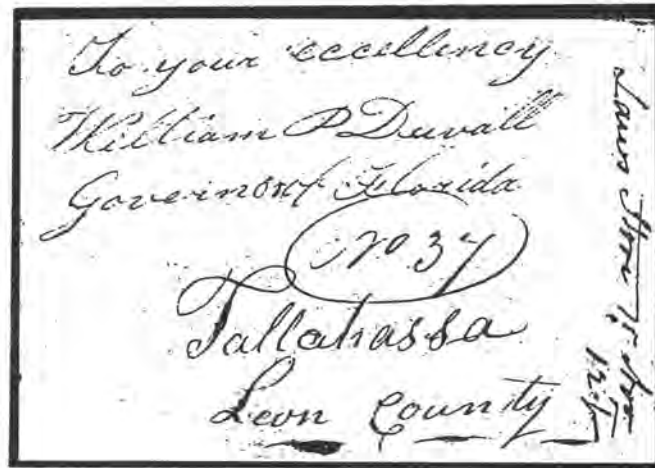 To your eccellency
William P Duvall
Governor of Florida
No 37
Tallahassa
Leon County